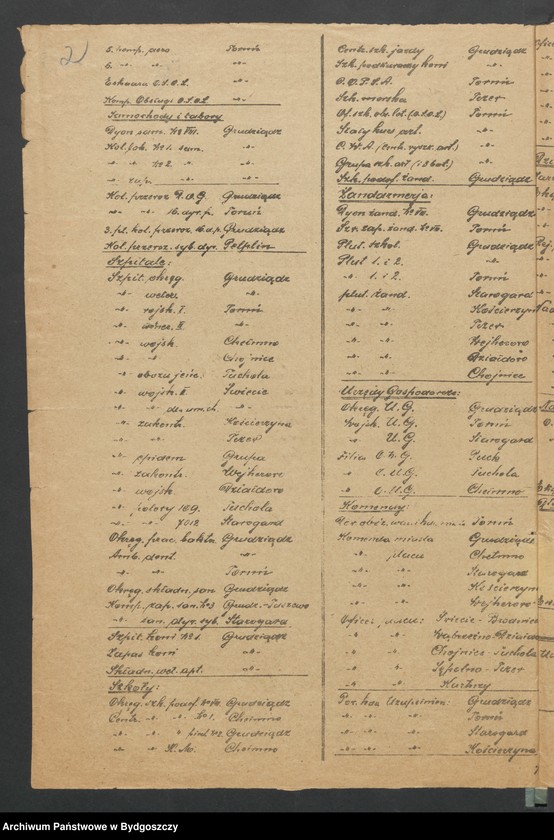 2
5. komp. Toruń
6. -"- -"- -"-
Eskadra O.S.O.L. -"-
Komp. Obsługi O.S.O.L. -"-
Samochody i tabory
Dyon sam. № VIII. Grudziądz
Kol. № 1. sam. -"-
-"- -"- № 2. -"- -"-
-"- zap. -"- -"-
Kol. przewoz. D.O.G. Grudziądz
-"- -"- 16. dyr. p. Toruń
3. pl. kol. przewoz. 16. d.p. Grudziądz
Kol. przewoz. syb. dyr. Pelplin
Szpitale:
Szpit. okręg. Grudziądz
-"- -"-
-"- rejsk. I. Toruń
-"- II. -"-
-"- wojsk. Chełmno
-"- -"- Chojnice
-"- obozu jenc. Tuchola
-"- wojsk. II. Świecie
-"- -"- -"-
-"- zakont. Kościerzyna
-"- -"- Tczew
-"- epidem Grupa
-"- zakont. Wejherowo
-"- wojsk. Działdowo
-"- polowy 109. Tuchola
-"- -"- 7012 Starogard
Okręg. prac. bakter. Grudziądz
Amb. dent. -"-
-"- -"- Toruń
Okręg. składn. san. Grudziądz
Komp. zap. san. № 3 Grudz-Tuszewo
-"- san. dyr. syb. Starogard
Szpit. koni № 1. Grudziądz
Zapas koni -"-
Składn. wet. apt. -"-
Szkoły:
Okręg. szk. podof. № VIII. Grudziądz
Centr. -"- -"- № 1. Chełmno
-"- -"- -"- № 2. Grudziądz
-"- -"- K.M. Chełmno
Centr. szk. jazdy Grudziądz
Szk. podkuwaczy koni -"-
O.O.P.S.A. Toruń
Szk. morska Tczew
Of. szk. obs. lot. (O.S.O.L.) Toruń
Stały kurs art. -"-
C.W.A. (Centr. wysz. art.) -"-
Grupa szk. art. (i 3 bat.) -"-
Szk. podof. żand. Grudziądz
Żandarmerja:
Dyon żand. № VIII. Grudziądz
Szw. zap. żand. № VIII. Toruń
Plut. szkol. Grudziądz
Plut. 1. i 2. -"-
-"- 1. i 2. Toruń
plut. żand. Starogard
-"- -"- Kościerzyn
-"- -"- Tczew
-"- -"- Wejherowo
-"- -"- Działdow
-"- -"- Chojnice
Urzędy Gospodarcze:
Okręg. U.G. Grudziądz
Wojsk. U.G. Toruń
-"- U.G. Starogard
Filia O.U.G. Puck
-"- O.U.G. Tuchola
-"- O.U.G. Chełmno
Komendy:
Toruń
Komenda miasta Grudziądz
-"- placu Chełmno
-"- -"- Starogard
-"- -"- Kościerzyn
-"- -"- Wejherowo
Oficer placu: Świecie-Brodnica
-"- -"- Wąbrzeźno-Działd
-"- -"- Chojnice-Tuchola
-"- -"- Sępolno-Tczew
-"- -"- Kartuzy
Pow. kom. Uzupełnień: Grudziądz
-"- -"- -"- Toruń
-"- -"- -"- Starogard
-"- -"- -"- Kościerzyna
Archiwum Państwowe w Bydgoszczy